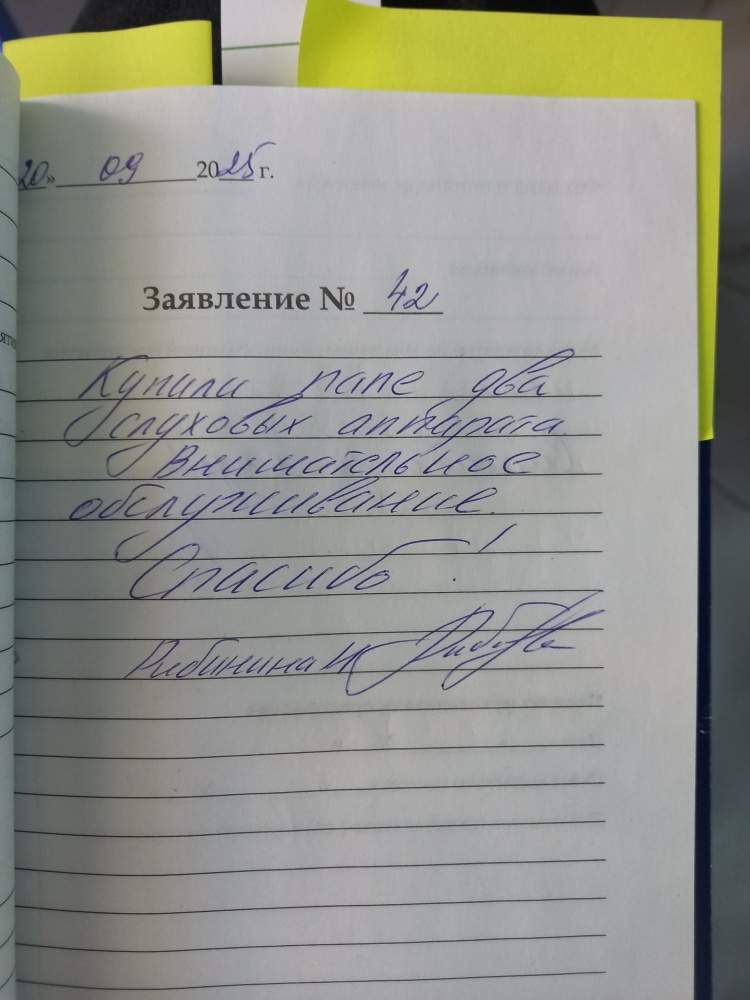 20» 09 2025 г.
Заявление № 42
Купили папе два
слуховых аппарата.
Внимательное
обслуживание.
Спасибо!